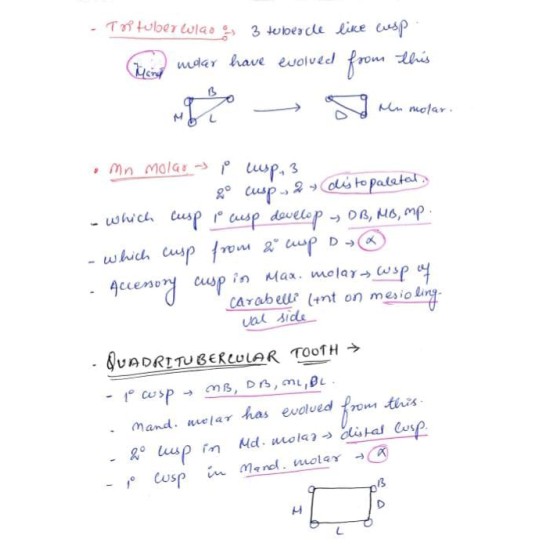 - Tritubercular :- 3 tubercle like cusp.
molar have evolved from this
B
M L → D Mn molar.
• Mn Molar → 1° cusp, 3
2° cusp → 2 → distopalatal.
- which cusp 1° cusp develop → DB, MB, MP.
- which cusp from 2° cusp D → α
- Accessory cusp in Max. molar → cusp of
carabelli (+nt on mesioling-
ual side
. QUADRITUBERCULAR TOOTH →
- 1° cusp → MB, DB, ML, DL.
- Mand. molar has evolved from this.
- 2° cusp in Md. molar → distal cusp.
- 1° cusp in Mand. molar → α
B
M D
L